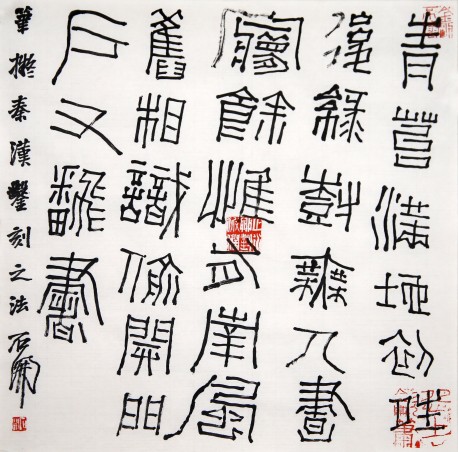 青苔滿地初晴
後綠樹無人晝
夢餘惟有南風
舊相識偷開門
戶又翻書
筆擬秦漢鑿刻之法石